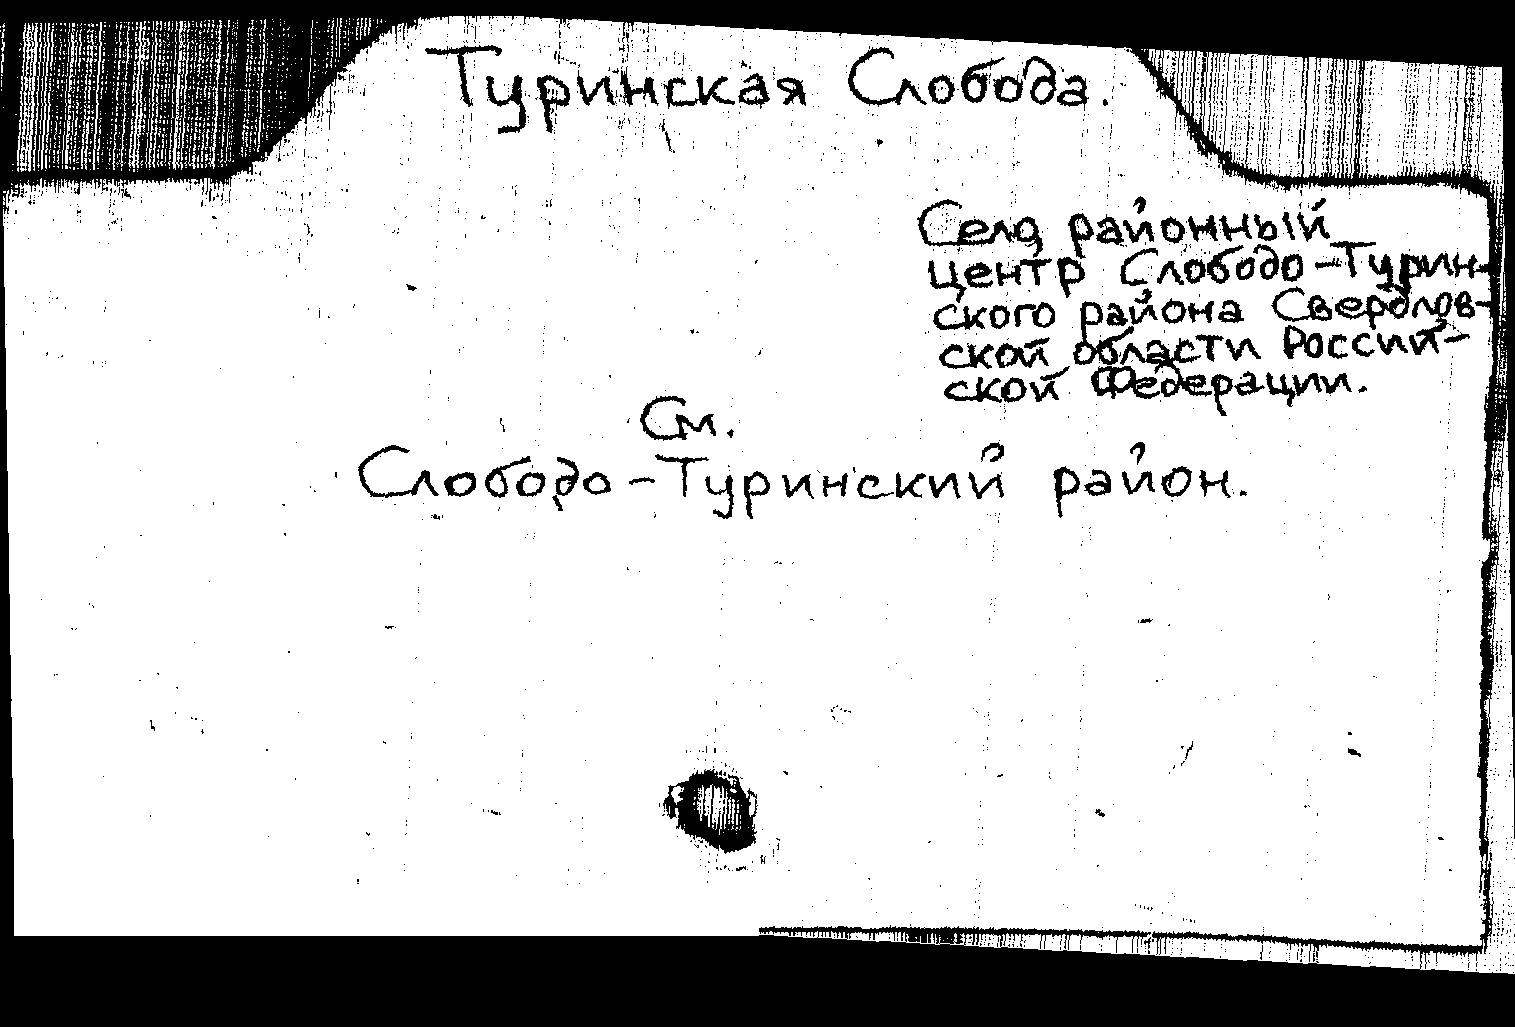 Туринская Слобода.
Село, районный
центр Слободо-Турин-
ского района Свердлов-
ской области Россий-
ской Федерации.
См.
Слободо-Туринский район.